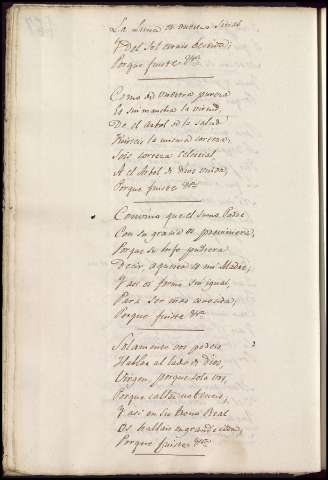 La Luna es vuestro Sitial
Y del Sol estais vestida;
Porque fuiste &ra.
Como de vuestra pureza
Es sin mancha la virtud,
De el Arbol de la salud
sois la misma corteza,
Sois corteza celestial,
A el Arbol de Dios unida,
Porque fuiste &ra.
Convino que el sumo Padre
Con su gracia os previniera,
Porque su hijo pudiera
Decir, aquesta es mi Madre,
Y asi os formó sin igual,
Para ser mas aplaudida,
Porque fuiste &ra.
Solamente vos podeis
Hablar al lado de Dios,
Virgen, porque sola vos,
Porque callar no
Y asi en su trono Real
Os hallais engrandecida,
Porque fuiste &ra.